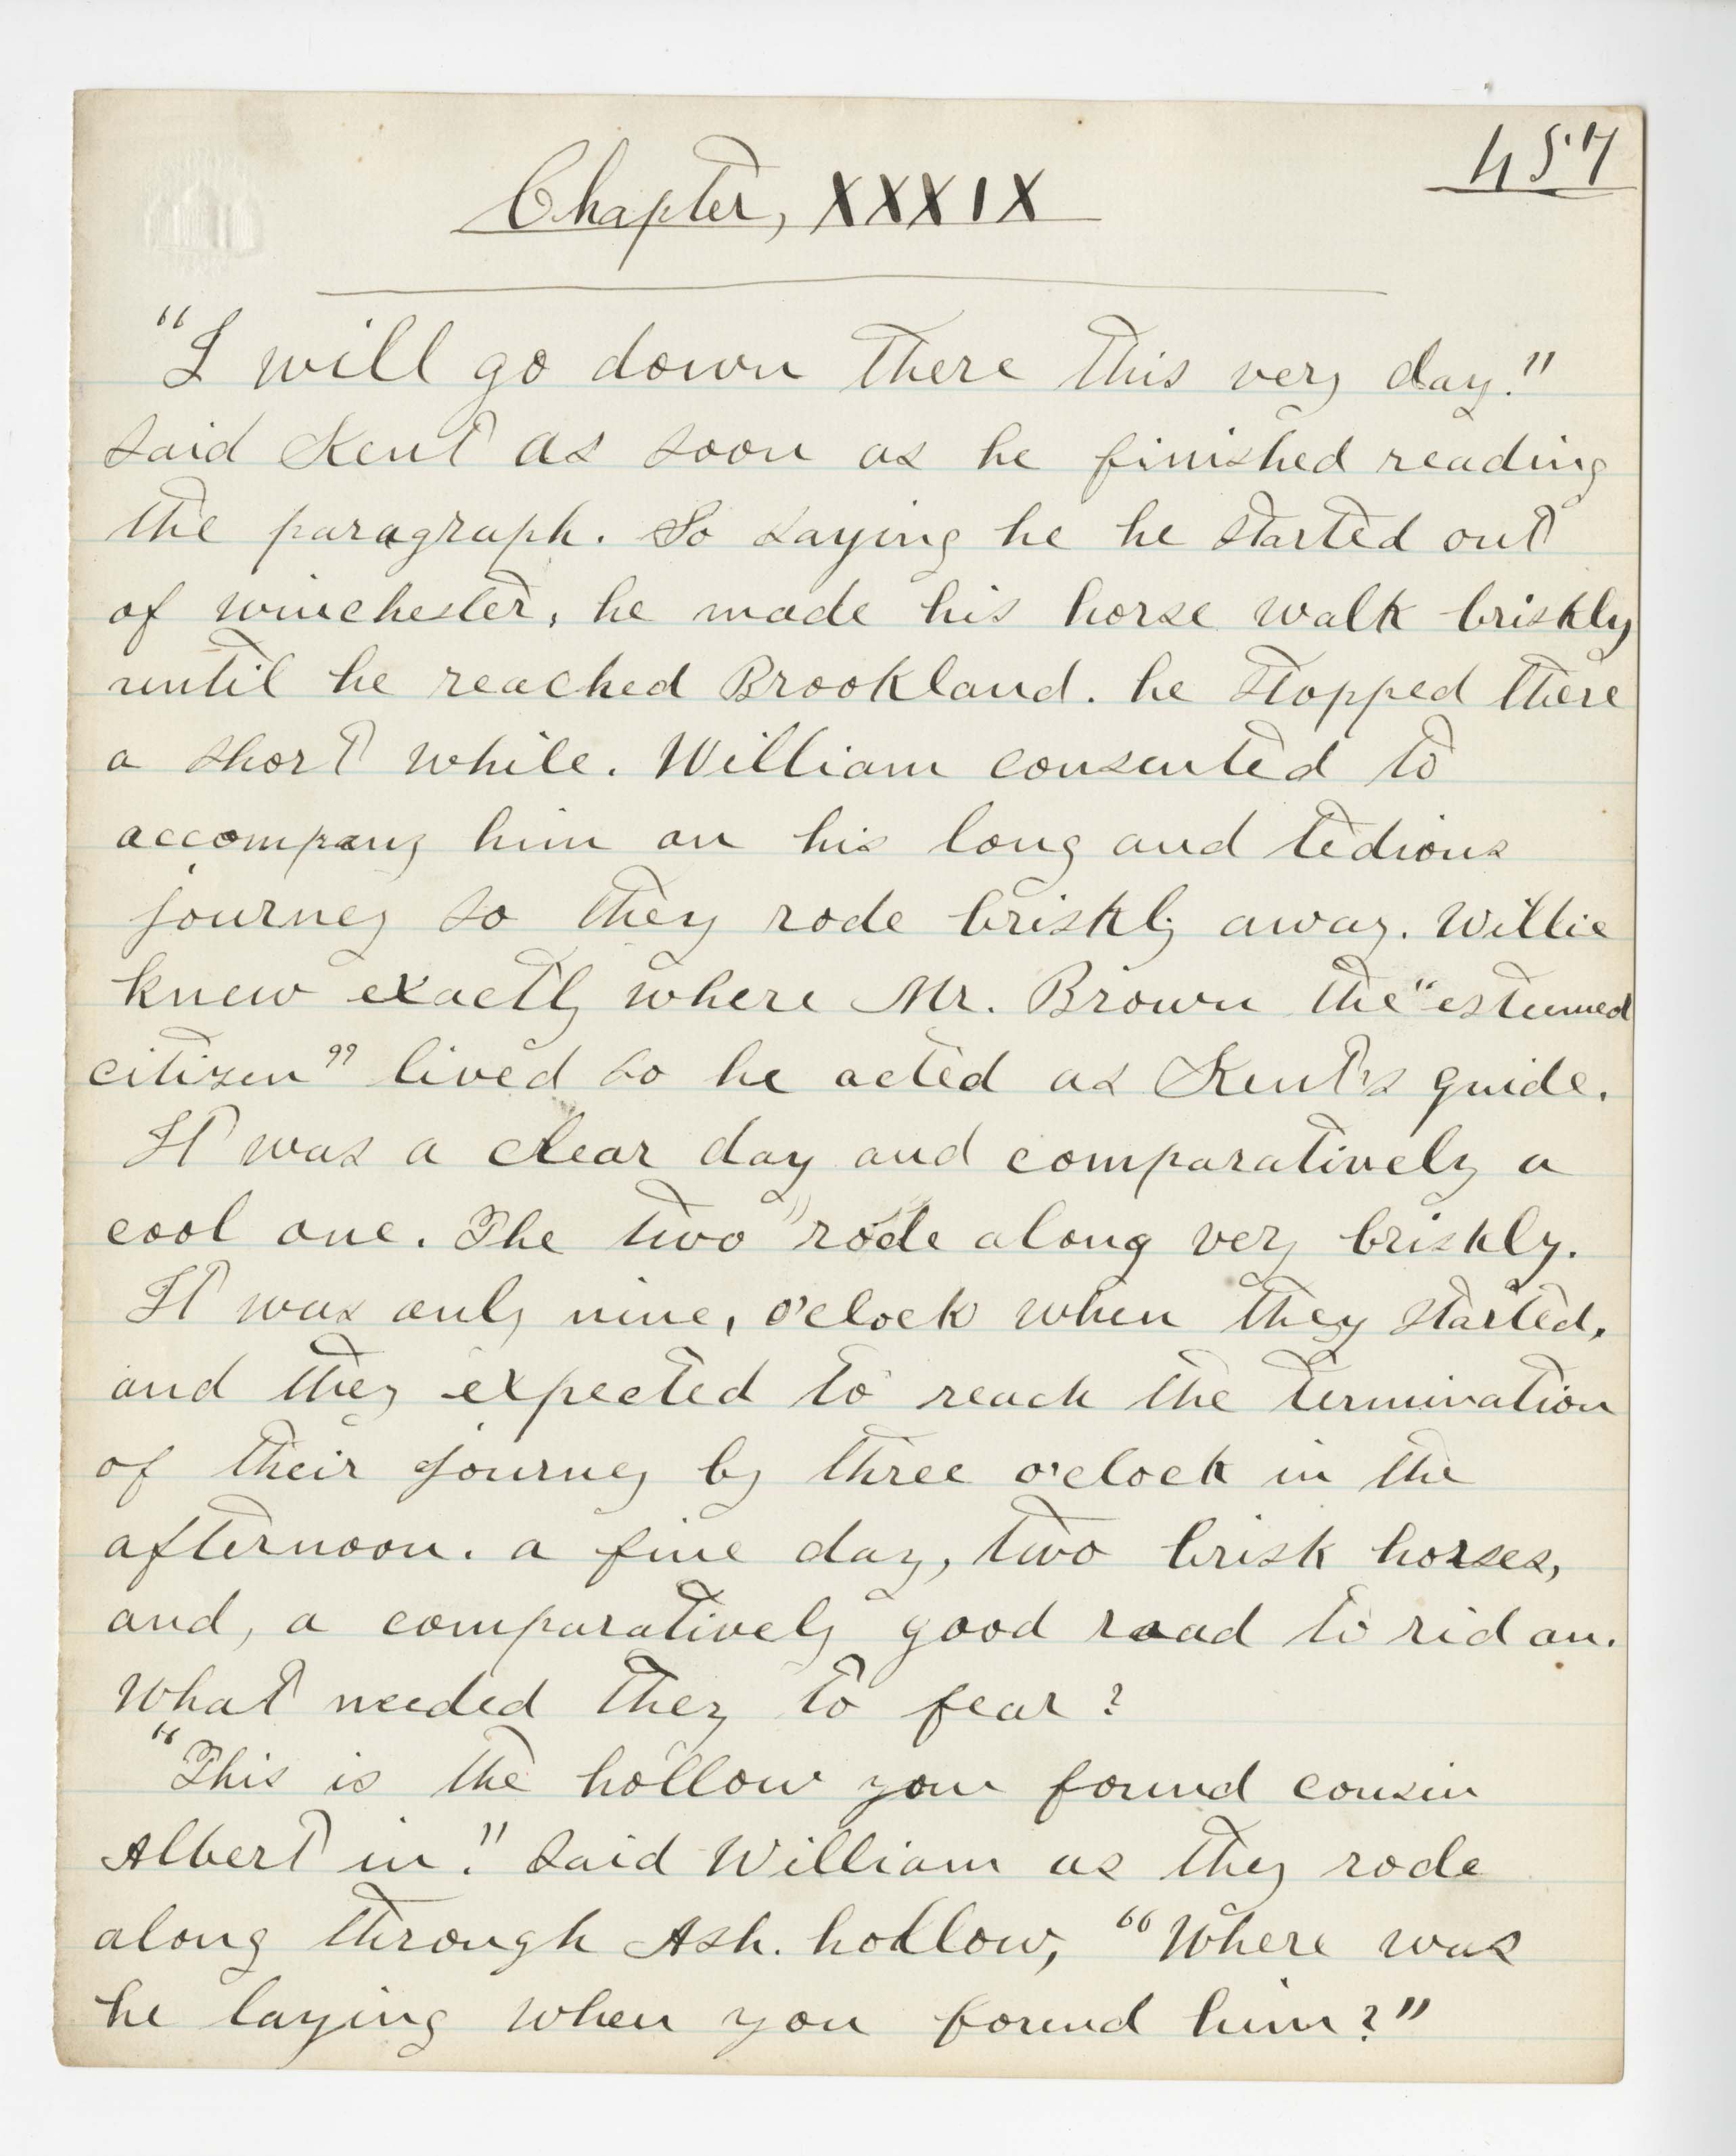 457
Chapter, XXXIX
"I will go down there this very day."
said Kent as soon as he finished reading
the paragraph. So saying he he started out
of winchester, he made his horse walk briskly
until he reached Brookland. he stopped there
a short while. William consented to
accompany him on his long and tedious
journey so they rode briskly away. Willie
knew exactly where Mr. Brown the "esteemed
citizen" lived so he acted as Kent's guide.
It was a clear day and comparatively a
cool one. The two rode along very briskly.
It was only nine, o'clock when they started,
and they expected to reach the termination
of their journey by three o'clock in the
afternoon. a fine day, two brisk horses,
and, a comparatively good road to rid on.
What needed they to fear?
"This is the hollow you found cousin
Albert in." said William as they rode
along through Ash. hollow, "Where was
he laying when you found him?"